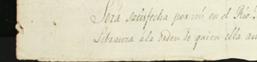 Será satisfecha por mi en el Rio
Litrarura a la orden de quien ella